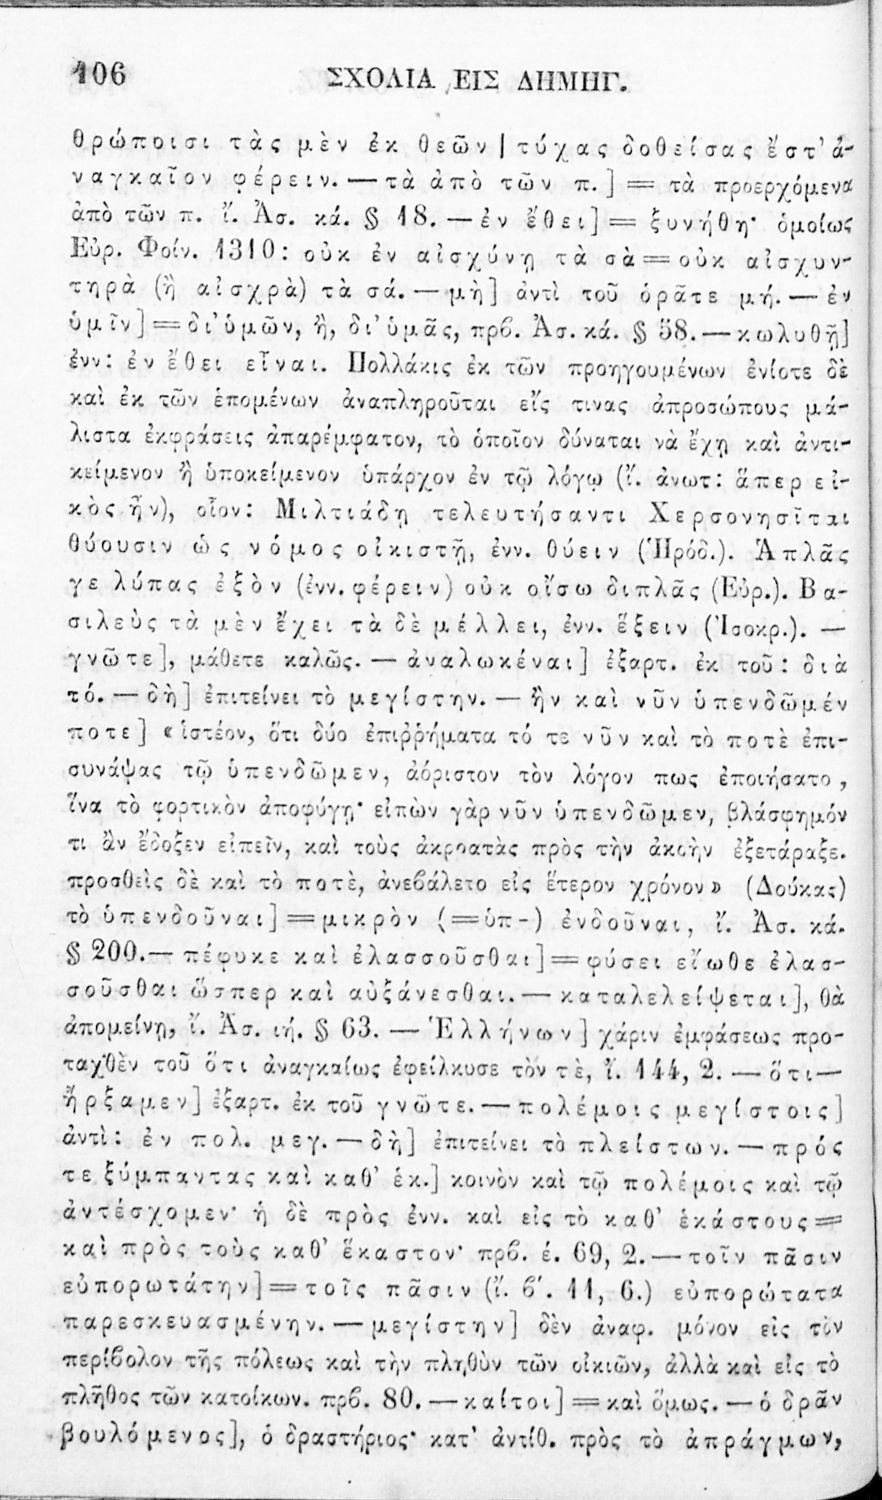 106 ΣΧΟΛΙΑ ΕΙΣ ΔΗΜΗΓ.
θρώποισι τὰς μὲν ἐκ θεῶν | τύχας δοθείσας ἔστ' ἀ-
ναγκαῖον φέρειν. — τὰ ἀπὸ τῶν π.] = τὰ προερχόμενα
ἀπὸ τῶν π. ἴ. Ἀσ. κά. § 18. — ἐν ἔθει] = ξυνήθη· ὁμοίως
Εὐρ. Φοίν. 1310: οὐκ ἐν αἰσχύνῃ τὰ σὰ = οὐκ αἰσχυν-
τηρὰ (ἢ αἰσχρὰ) τὰ σά. — μὴ] ἀντὶ τοῦ ὁρᾶτε μή. — ἐν
ὑμῖν] = δι' ὑμῶν, ἢ, δι' ὑμᾶς, πρϐ. Ἀσ. κά. § 58. — κωλυθῇ]
ἐνν: ἐν ἔθει εἶναι. Πολλάκις ἐκ τῶν προηγουμένων ἐνίοτε δὲ
καὶ ἐκ τῶν ἑπομένων ἀναπληροῦται εἴς τινας ἀπροσώπους μά-
λιστα ἐκφράσεις ἀπαρέμφατον, τὸ ὁποῖον δύναται νὰ ἔχῃ καὶ ἀντι-
κείμενον ἢ ὑποκείμενον ὑπάρχον ἐν τῷ λόγῳ (ἴ. ἀνωτ: ἅπερ εἰ-
κὸς ἦν), οἷον: Μιλτιάδῃ τελευτήσαντι Χερσονησῖται
θύουσιν ὡς νόμος οἰκιστῇ, ἐνν. θύειν (Ἡρόδ.). Ἁπλᾶς
γε λύπας ἐξὸν (ἐνν. φέρειν) οὐκ οἴσω διπλᾶς (Εὐρ.). Βα-
σιλεὺς τὰ μὲν ἔχει τὰ δὲ μέλλει, ἐνν. ἕξειν (Ἰσοκρ.). —
γνῶτε], μάθετε καλῶς. — ἀναλωκέναι] ἐξαρτ. ἐκ τοῦ: διὰ
τό. — δὴ] ἐπιτείνει τὸ μεγίστην. — ἢν καὶ νῦν ὑπενδῶμέν
ποτε] « ἰστέον, ὅτι δύο ἐπιῤῥήματα τό τε νῦν καὶ τὸ ποτὲ ἐπι-
συνάψας τῷ ὑπενδῶμεν, ἀόριστον τὸν λόγον πως ἐποιήσατο,
ἵνα τὸ φορτικὸν ἀποφύγῃ· εἰπὼν γὰρ νῦν ὑπενδῶμεν, βλάσφημόν
τι ἂν ἔδοξεν εἰπεῖν, καὶ τοὺς ἀκροατὰς πρὸς τὴν ἀκοὴν ἐξετάραξε.
προσθεὶς δὲ καὶ τὸ ποτὲ, ἀνεϐάλετο εἰς ἕτερον χρόνον » (Δούκας)
τὸ ὑπενδοῦναι] = μικρὸν (= ὑπ-) ἐνδοῦναι, ἴ. Ἀσ. κά.
§ 200. — πέφυκε καὶ ἐλασσοῦσθαι] = φύσει εἴωθε ἐλασ-
σοῦσθαι ὥσπερ καὶ αὐξάνεσθαι. — καταλελείψεται], θὰ
ἀπομείνῃ, ἴ. Ἀσ. ιή. § 63. — Ἑλλήνων] χάριν ἐμφάσεως προ-
ταχθὲν τοῦ ὅτι ἀναγκαίως ἐφείλκυσε τὸν τὲ, ἴ. 144, 2. — ὅτι —
ἤρξαμεν] ἐξαρτ. ἐκ τοῦ γνῶτε. — πολέμοις μεγίστοις]
ἀντὶ: ἐν πολ. μεγ. — δὴ] ἐπιτείνει τὸ πλείστων. — πρός
τε ξύμπαντας καὶ καθ' ἑκ.] κοινὸν καὶ τῷ πολέμοις καὶ τῷ
ἀντέσχομεν· ἡ δὲ πρὸς ἐνν. καὶ εἰς τὸ καθ' ἑκάστους =
καὶ πρὸς τοὺς καθ' ἕκαστον· πρϐ. έ. 69, 2. — τοῖν πᾶσιν
εὐπορωτάτην] = τοῖς πᾶσιν (ἴ. ϐ'. 11, 6.) εὐπορώτατα
παρεσκευασμένην. — μεγίστην] δὲν ἀναφ. μόνον εἰς τὸν
περίϐολον τῆς πόλεως καὶ τὴν πληθὺν τῶν οἰκιῶν, ἀλλὰ καὶ εἰς τὸ
πλῆθος τῶν κατοίκων. πρϐ. 80. — καίτοι] = καὶ ὅμως. — ὁ δρᾶν
βουλόμενος], ὁ δραστήριος· κατ' ἀντίθ. πρὸς τὸ ἀπράγμων,